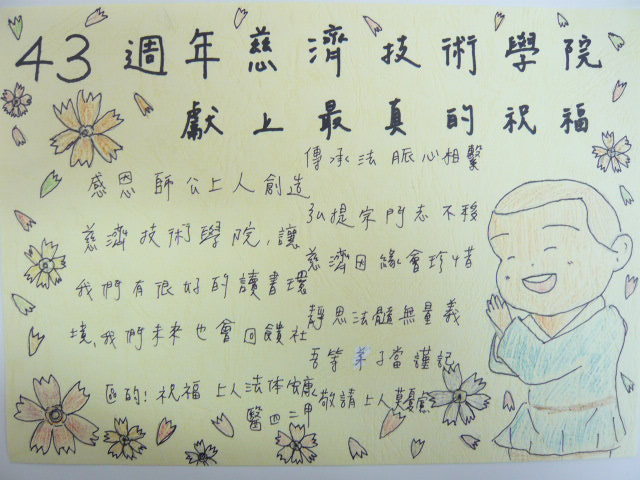 43 週年慈濟技術學院
獻上最真的祝福
感恩師公上人創造
慈濟技術學院,讓
我們有很好的讀書環
境,我們未來也會回饋社
區的!祝福上人法体安康
醫四二甲
傳承法脈心相繫
弘提宗門志不移
慈濟因緣會珍惜
靜思法髓無量義
吾等弟子當謹記
敬請上人莫憂慮